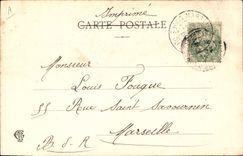 Imprimé
CARTE POSTALE
Monsieur
Louis Fouque
55 Rue Saint Savournin
B. d. R. Marseille